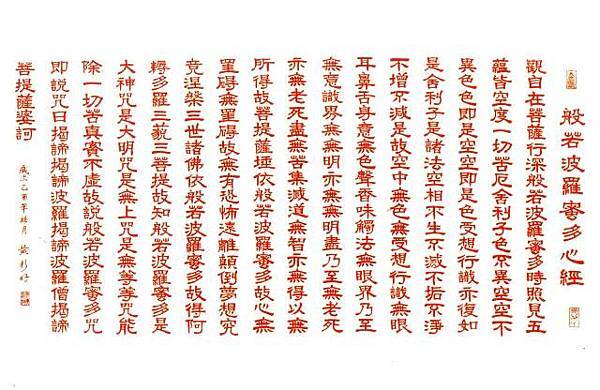 般若波羅蜜多心經
觀自在菩薩行深般若波羅蜜多時照見五
蘊皆空度一切苦厄舍利子色不異空空不
異色色即是空空即是色受想行識亦復如
是舍利子是諸法空相不生不滅不垢不淨
不增不減是故空中無色無受想行識無眼
耳鼻舌身意無色聲香味觸法無眼界乃至
無意識界無無明亦無無明盡乃至無老死
亦無老死盡無苦集滅道無智亦無得以無
所得故菩提薩埵依般若波羅蜜多故心無
罣礙無罣礙故無有恐怖遠離顛倒夢想究
竟涅槃三世諸佛依般若波羅蜜多故得阿
耨多羅三藐三菩提故知般若波羅蜜多是
大神咒是大明咒是無上咒是無等等咒能
除一切苦真實不虛故說般若波羅蜜多咒
即說咒曰揭諦揭諦波羅揭諦波羅僧揭諦
菩提薩婆訶